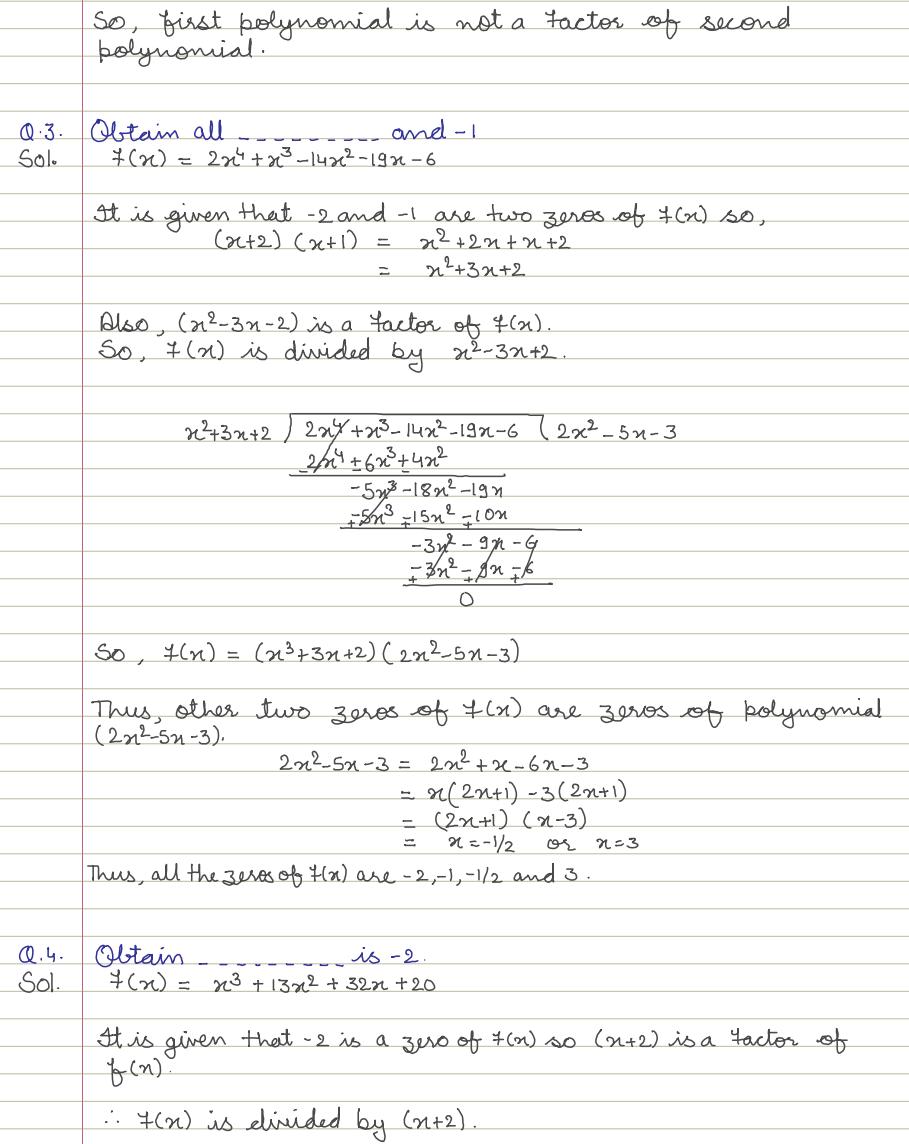 So, first polynomial is not a factor of second
polynomial.
Q.3. Obtain all _ _ _ _ _ _ _ _ _ and -1
Sol. f(x) = 2x⁴ + x³ - 14x² - 19x - 6
It is given that -2 and -1 are two zeros of f(x) so,
(x+2) (x+1) = x² + 2x + x + 2
= x² + 3x + 2
Also, (x² - 3x - 2) is a factor of f(x).
So, f(x) is divided by x² - 3x + 2.
x² + 3x + 2 ) 2x⁴ + x³ - 14x² - 19x - 6 ( 2x² - 5x - 3
- 2x⁴ ± 6x³ ± 4x²
-5x³ - 18x² - 19x
∓ 5x³ ∓ 15x² ∓ 10x
-3x² - 9x - 6
∓ 3x² ∓ 9x ∓ 6
0
So, f(x) = (x³ + 3x + 2) (2x² - 5x - 3)
Thus, other two zeros of f(x) are zeros of polynomial
(2x² - 5x - 3).
2x² - 5x - 3 = 2x² + x - 6x - 3
= x(2x+1) - 3(2x+1)
= (2x+1) (x-3)
= x = -1/2 or x = 3
Thus, all the zeros of f(x) are -2, -1, -1/2 and 3.
Q.4. Obtain _ _ _ _ _ _ _ _ _ is -2.
Sol. f(x) = x³ + 13x² + 32x + 20
It is given that -2 is a zero of f(x) so (x+2) is a factor of
f(x).
∴ f(x) is divided by (x+2).